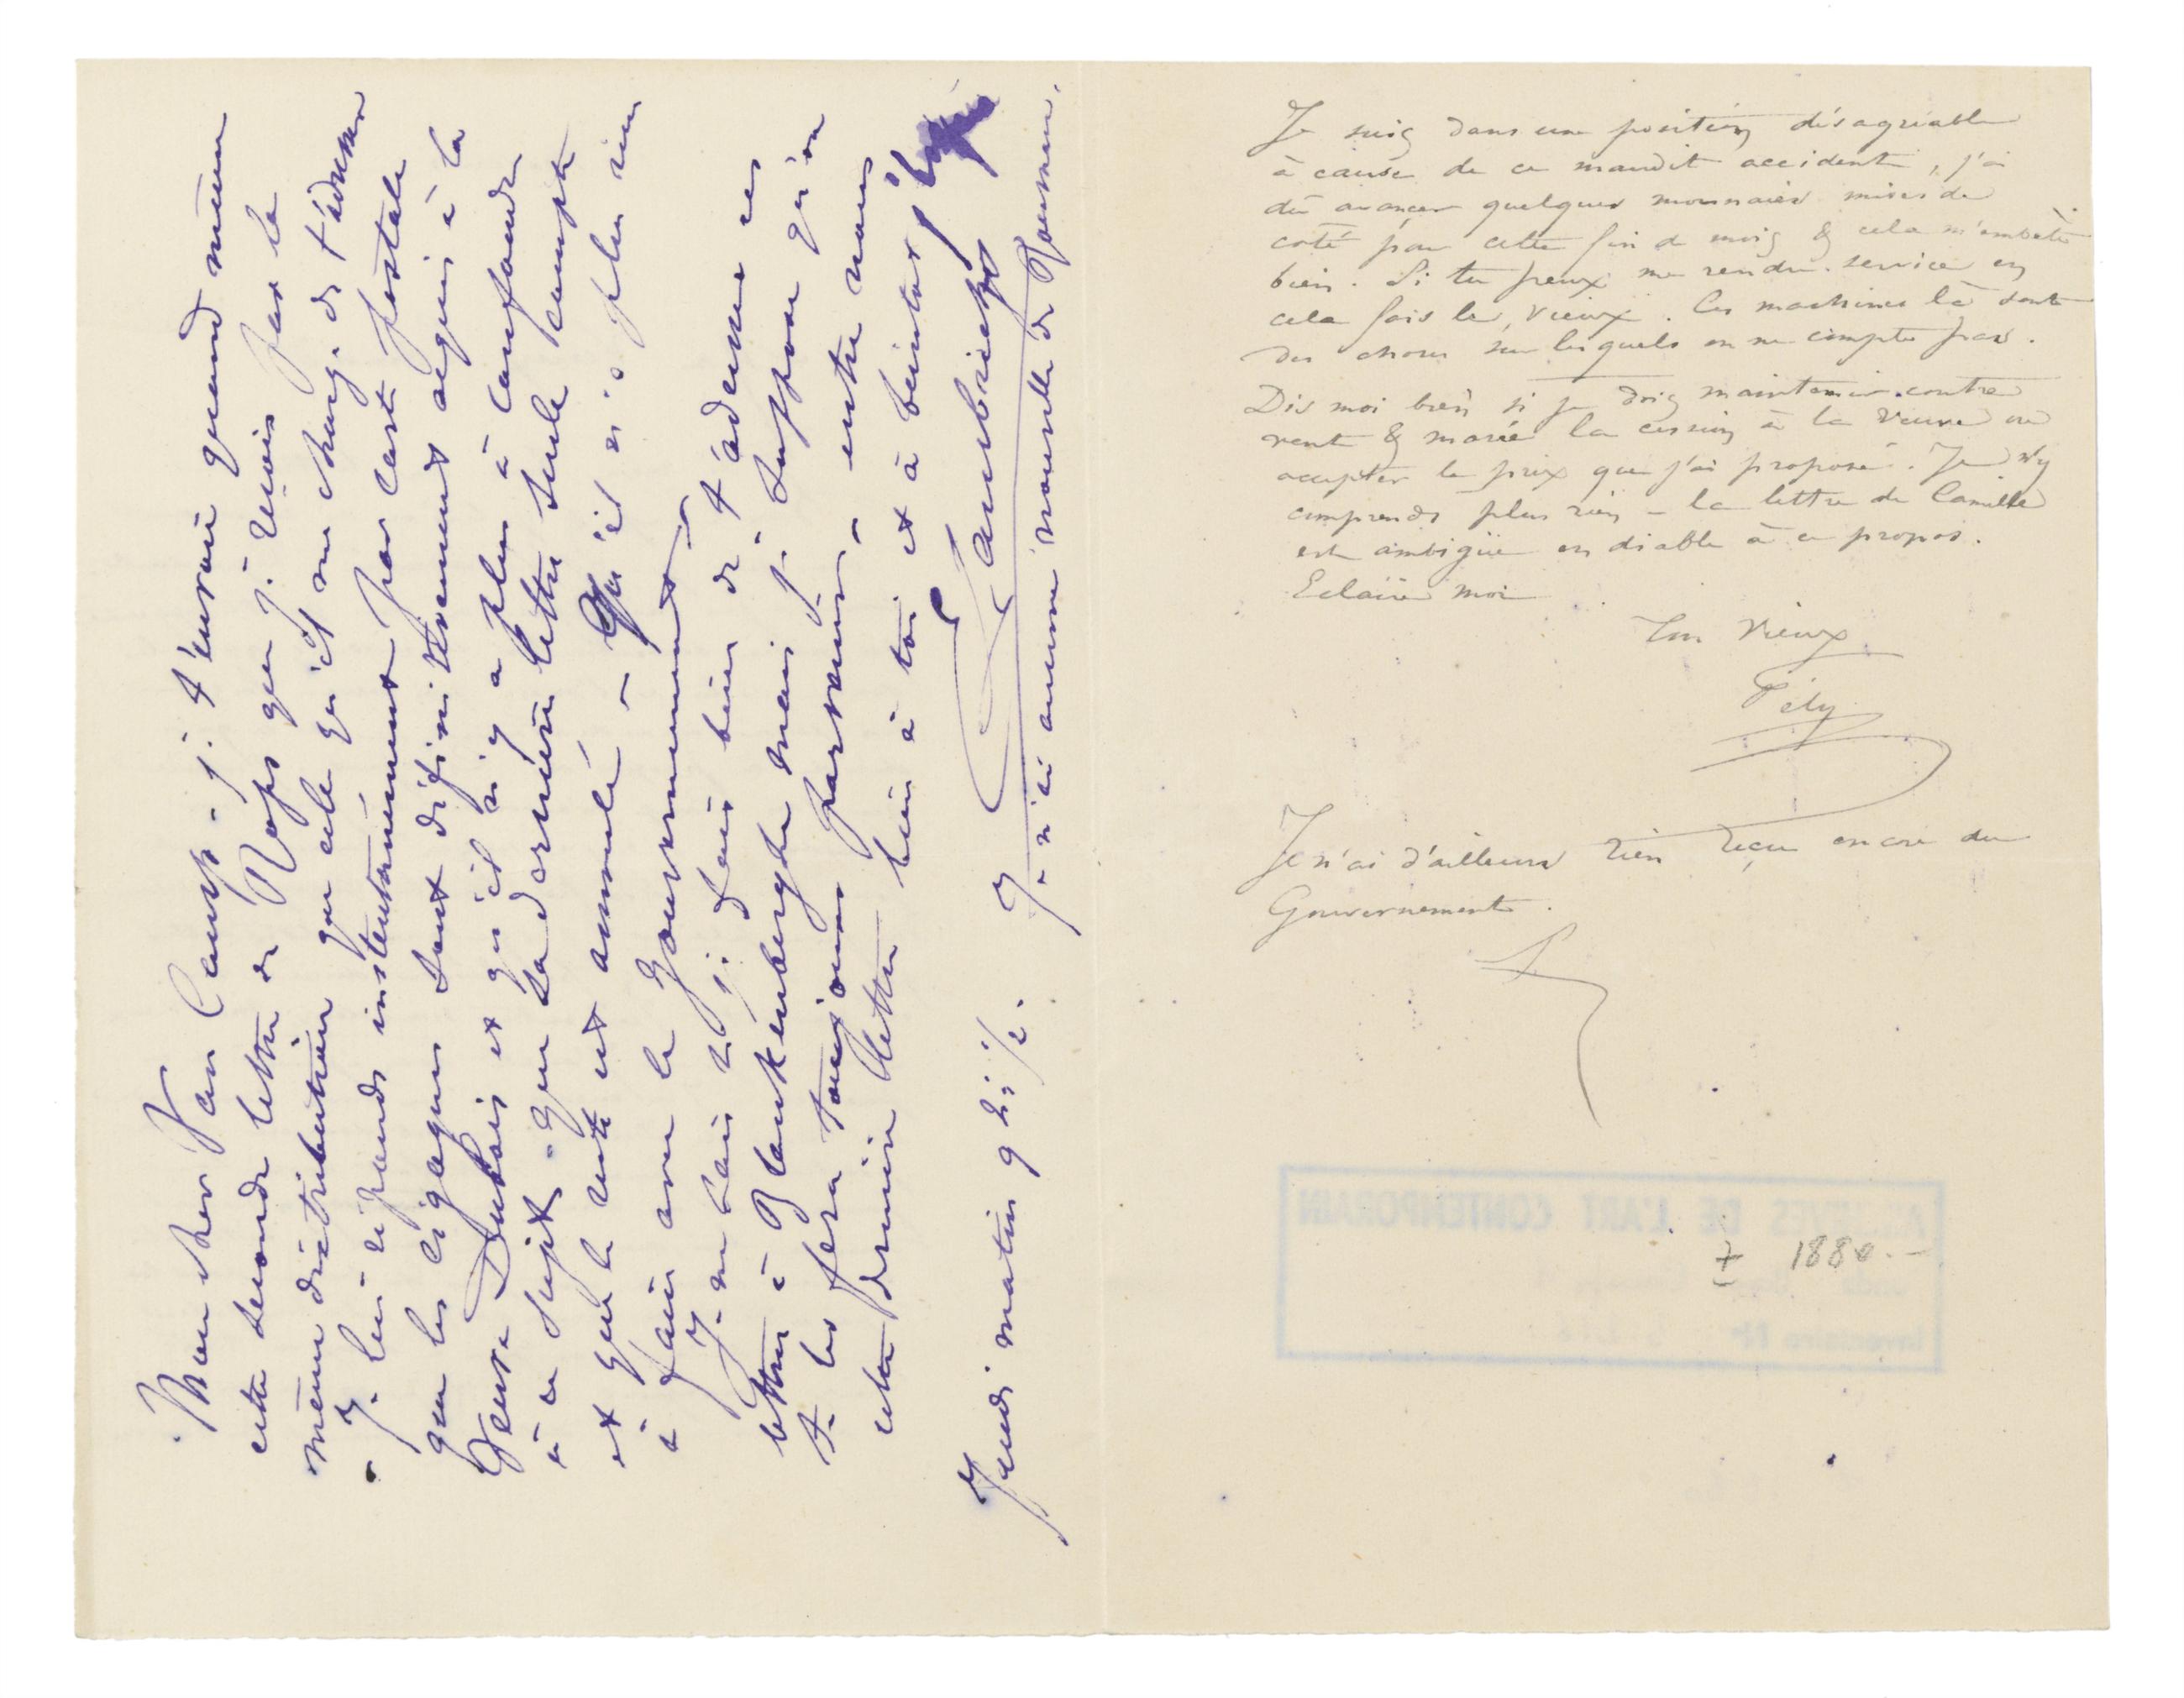 Mon cher Van Camp. je t'envoie quand même
cette seconde lettre de Rops que je reçois par la
même distribution que celle qu'il me charge de t'adresser
- Je lui réponds instantanément par carte postale
que les cigognes sont définitivement acquis à la
Veuve Dubois et qu'il n'y a plus à confondre
à ce sujet - que sa dernière lettre seule compte
et que la vente est annulée - Qu'il n'a plus rien
à faire avec le Gouvernement
Je ne sais si je fais bien de t'adresser ces
lettres à Blankenberghe mais je suppose qu'on
te les fera toujours parvenir - entre nous
cette dernière lettre bien à toi et à bientôt j'espère
Cambrier
Jeudi matin 9 2i/2. Je n'ai aucune nouvelle de Roumen.
Je suis dans une position désagréable
à cause de ce maudit accident, j'ai
dû avancer quelques monnaies mises de
coté pour cette fin de mois & cela m'embête
bien. Si tu peux me rendre service en
cela fais le, vieux. Ces machines là sont
des choses sur lesquels on ne compte pas.
Dis moi bien si je dois maintenir contre
vent & marée la cession à la Veuve ou
accepter le prix que j'ai proposé. Je n'y
comprends plus rien - la lettre de Camille
est ambigüe en diable à ce propos.
Eclaire moi
Ton Vieux
Fély
Je n'ai d'ailleurs rien reçu encore du
Gouvernement.
ARCHIVES DE L'ART CONTEMPORAIN
± 1880.-
Inventaire N°